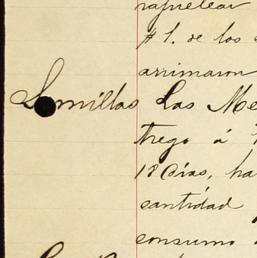 rafletear
#1. de los
arrimaron
Semillas Las Me
trego á
18 días, ha
cantidad
consumo